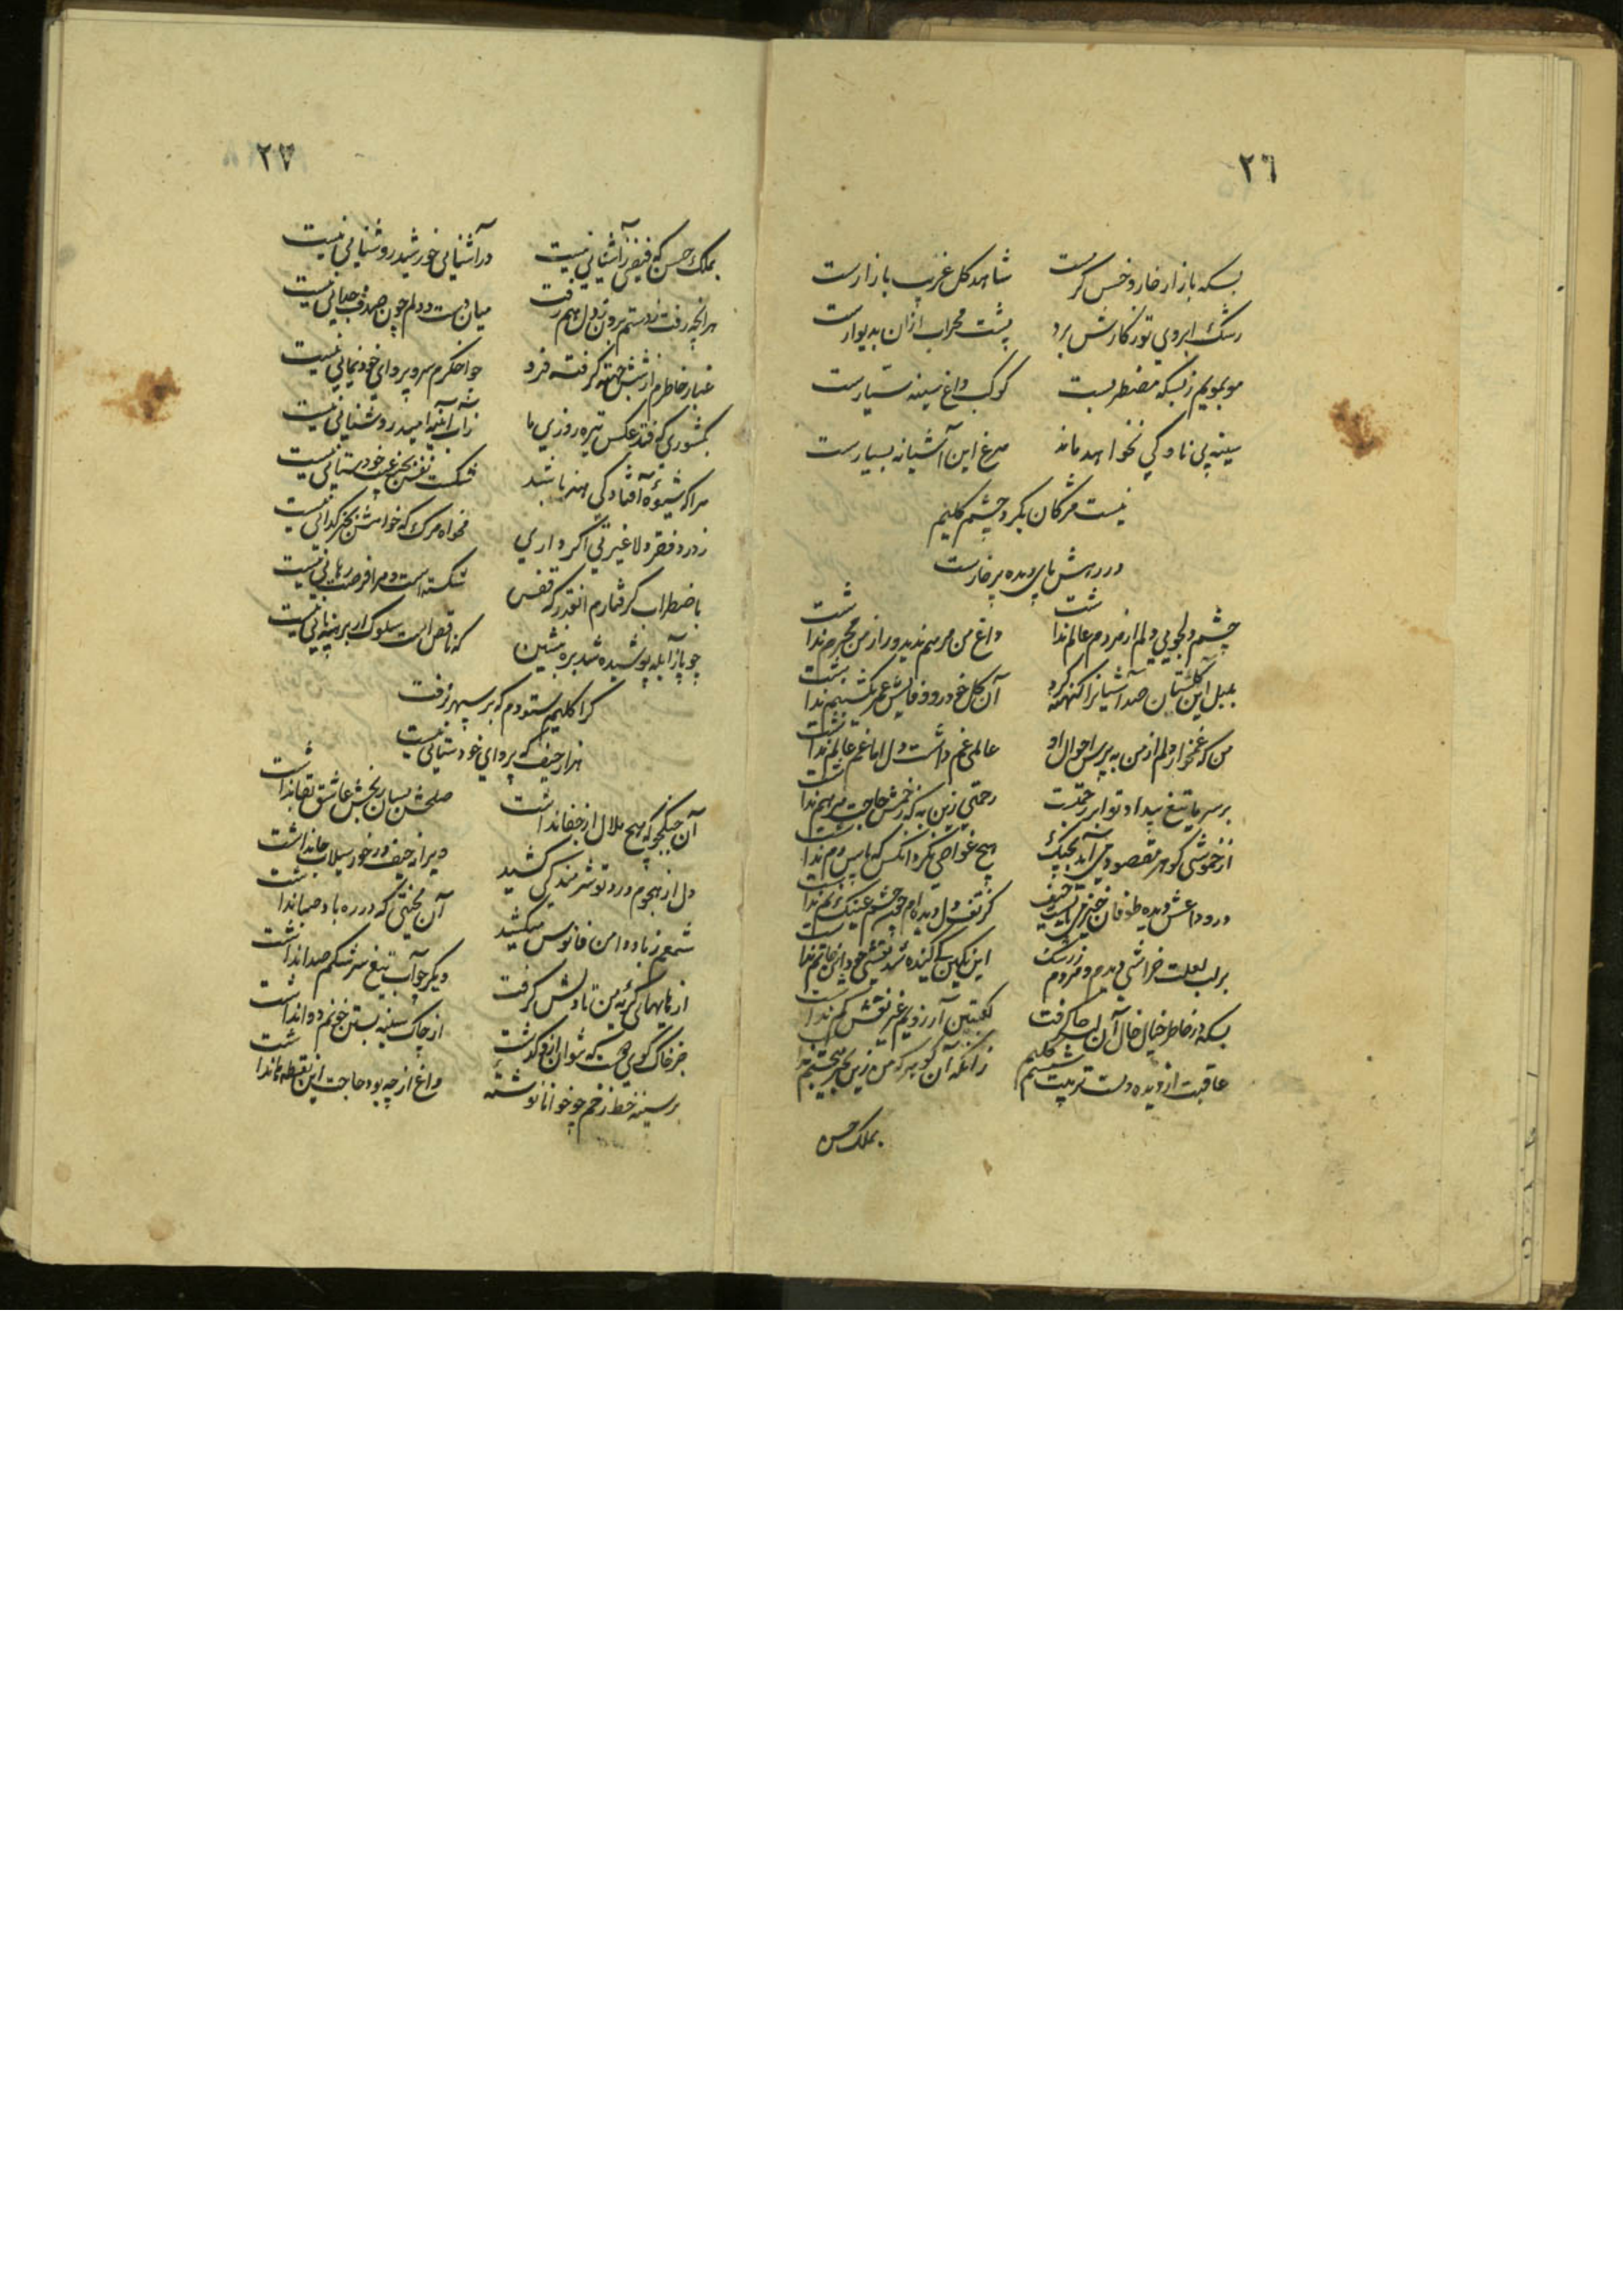 ٢٦
بسکه بازار خار و خس کرمست شاهد کل غریب بازارست
رشک ابروی تو ز کارش برد پشت محراب ازان بدیوارست
موبمویم ز بسکه مضطربست کوکب داغ سینه سیارست
سینه بی ناوکی نخواهد ماند مرغ این آشیانه بسیارست
نیست مژکان بکرد چشم کلیم
در رهش پای دیده پر خارست
چشم دلجویی دلم از مردم عالم نداشت داغ من مرهم ندید و راز من محرم نداشت
بلبل این کلستان صد آشیانرا کهنه کرد آن کل خودرو وفایش عمر یکشبنم نداشت
من که غمخوار دلم از من بپرس احوال او عالمی غم داشت دل اما غم عالم نداشت
بر سر ما تیغ بیداد تو ابر رحمتست رحمتی زین به که زخمش حاجت مرهم نداشت
از خموشی کوهر مقصود می آید بچنک هیچ غواصی نکرد آنکس که پاس دم نداشت
در وداعش دیده طوفان خیز می بایست حیف کز تف دل دیده ام چون چشم عینک نم نداشت
بر لب لعلت خراشی دیدم و مردم ز رشک این نکین کی کنده شد نقشی خود این خاتم نداشت
بسکه در خاطر خیال خال آن لب جا کرفت کعبتین آرزویم غیر نقش کم نداشت
عاقبت از دیده دست تربیت شستم کلیم زانکه آن کوهر که من زین بحر میجستم نداشت
بملک حسن
٢٧
بملک حسن که فیض آشنایی نیست در آشنایی خورشید روشنایی نیست
هر آنچه رفت ز دستم برون ز دل هم رفت میان دست و دلم چون صدف جدایی نیست
غبار خاطرم از شش جهة کرفته فرو چو اخکرم سر و پروای خودنمایی نیست
بکشوری که فتد عکس تیره روزی ما ز آب آینه امید روشنایی نیست
مرا که شیوه افتادکی هنر باشد شکست نفس بجز عیب خودستایی نیست
ز درد فقر دلا غیرتی اکر داری بخواه مرک که خواهش بجز کدایی نیست
باضطراب کرفتارم انقدر که قفس شکسته است و مرا فرصت رهایی نیست
چو پا ز آبله پوشیده شد بره منشین که ناقص است سلوک ار برهنه پایی نیست
کرا کلیم ستودم که بر سپهر نرفت
هزار حیف که پروای خودستایی نیست
آن جنکجو که هیچ ملال از جفا نداشت صلحش بسان رنجش عاشق بقا نداشت
دل از هجوم درد تو شرمندکی کشید ویرانه حیف در خور سیلاب جا نداشت
شمعم ز باد دامن فانوس میکشید آن محنتی که در ره باد صبا نداشت
از هایهای کریه من تا دلش کرفت دیکر چو آب تیغ سرشکم صدا نداشت
جز خاک کوی دوست که نتوان ازو کذشت از چاک سینه بستن خونم دوا نداشت
بر سینه خط زخم چو خوانا نوشته داغ از چه بود حاجت این نقطها نداشت